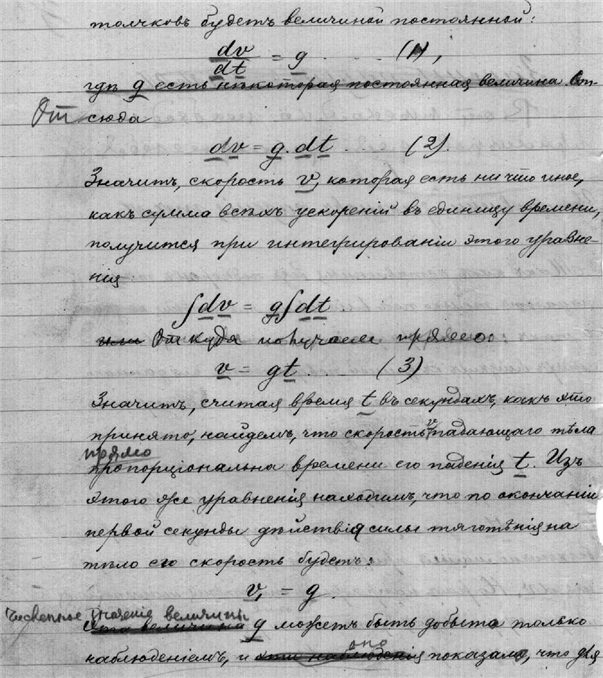 толчковъ будетъ величиной постоянной:
dv/dt = g ..... (1),
гдѣ g есть нѣкоторая постоянная величина От-
От
сюда
dv = g.dt. (2)
Значитъ, скорость v, которая есть ни что иное,
какъ сумма всѣхъ ускореній въ единицу времени,
получится при интегрированіи этого уравне-
нія
∫dv = g∫dt.
или Откуда получаемъ прямо:
v = gt ... (3)
Значитъ, считая время t въ секундахъ, какъ это
принято, найдемъ, что скорость v падающаго тѣла
прямо
пропорціональна времени его паденія t. Изъ
этого же уравненія находимъ, что по окончаніи
первой секунды дѣйствія силы тяготѣнія на
тѣло его скорость будетъ:
v₁ = g.
Численное значеніе величины
Эта величина g можетъ быть добыта только
оно
наблюденіемъ, и эти наблюденія показало, что для